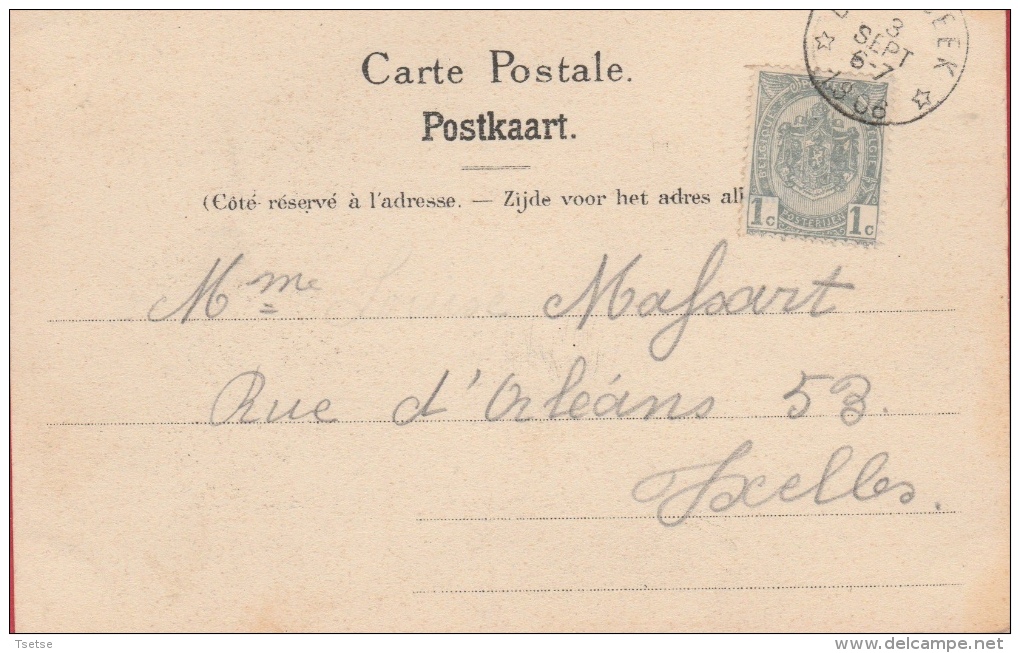 Carte Postale.
Postkaart.
(Côté réservé à l'adresse. — Zijde voor het adres all
3
SEPT
6-7
EEK
BELGIQUE
BELGIË
POSTERIJEN
1c 1c
Mme Louise Massart
Rue d'Orléans 53.
Ixelles.
Tsetse
delcampe.net